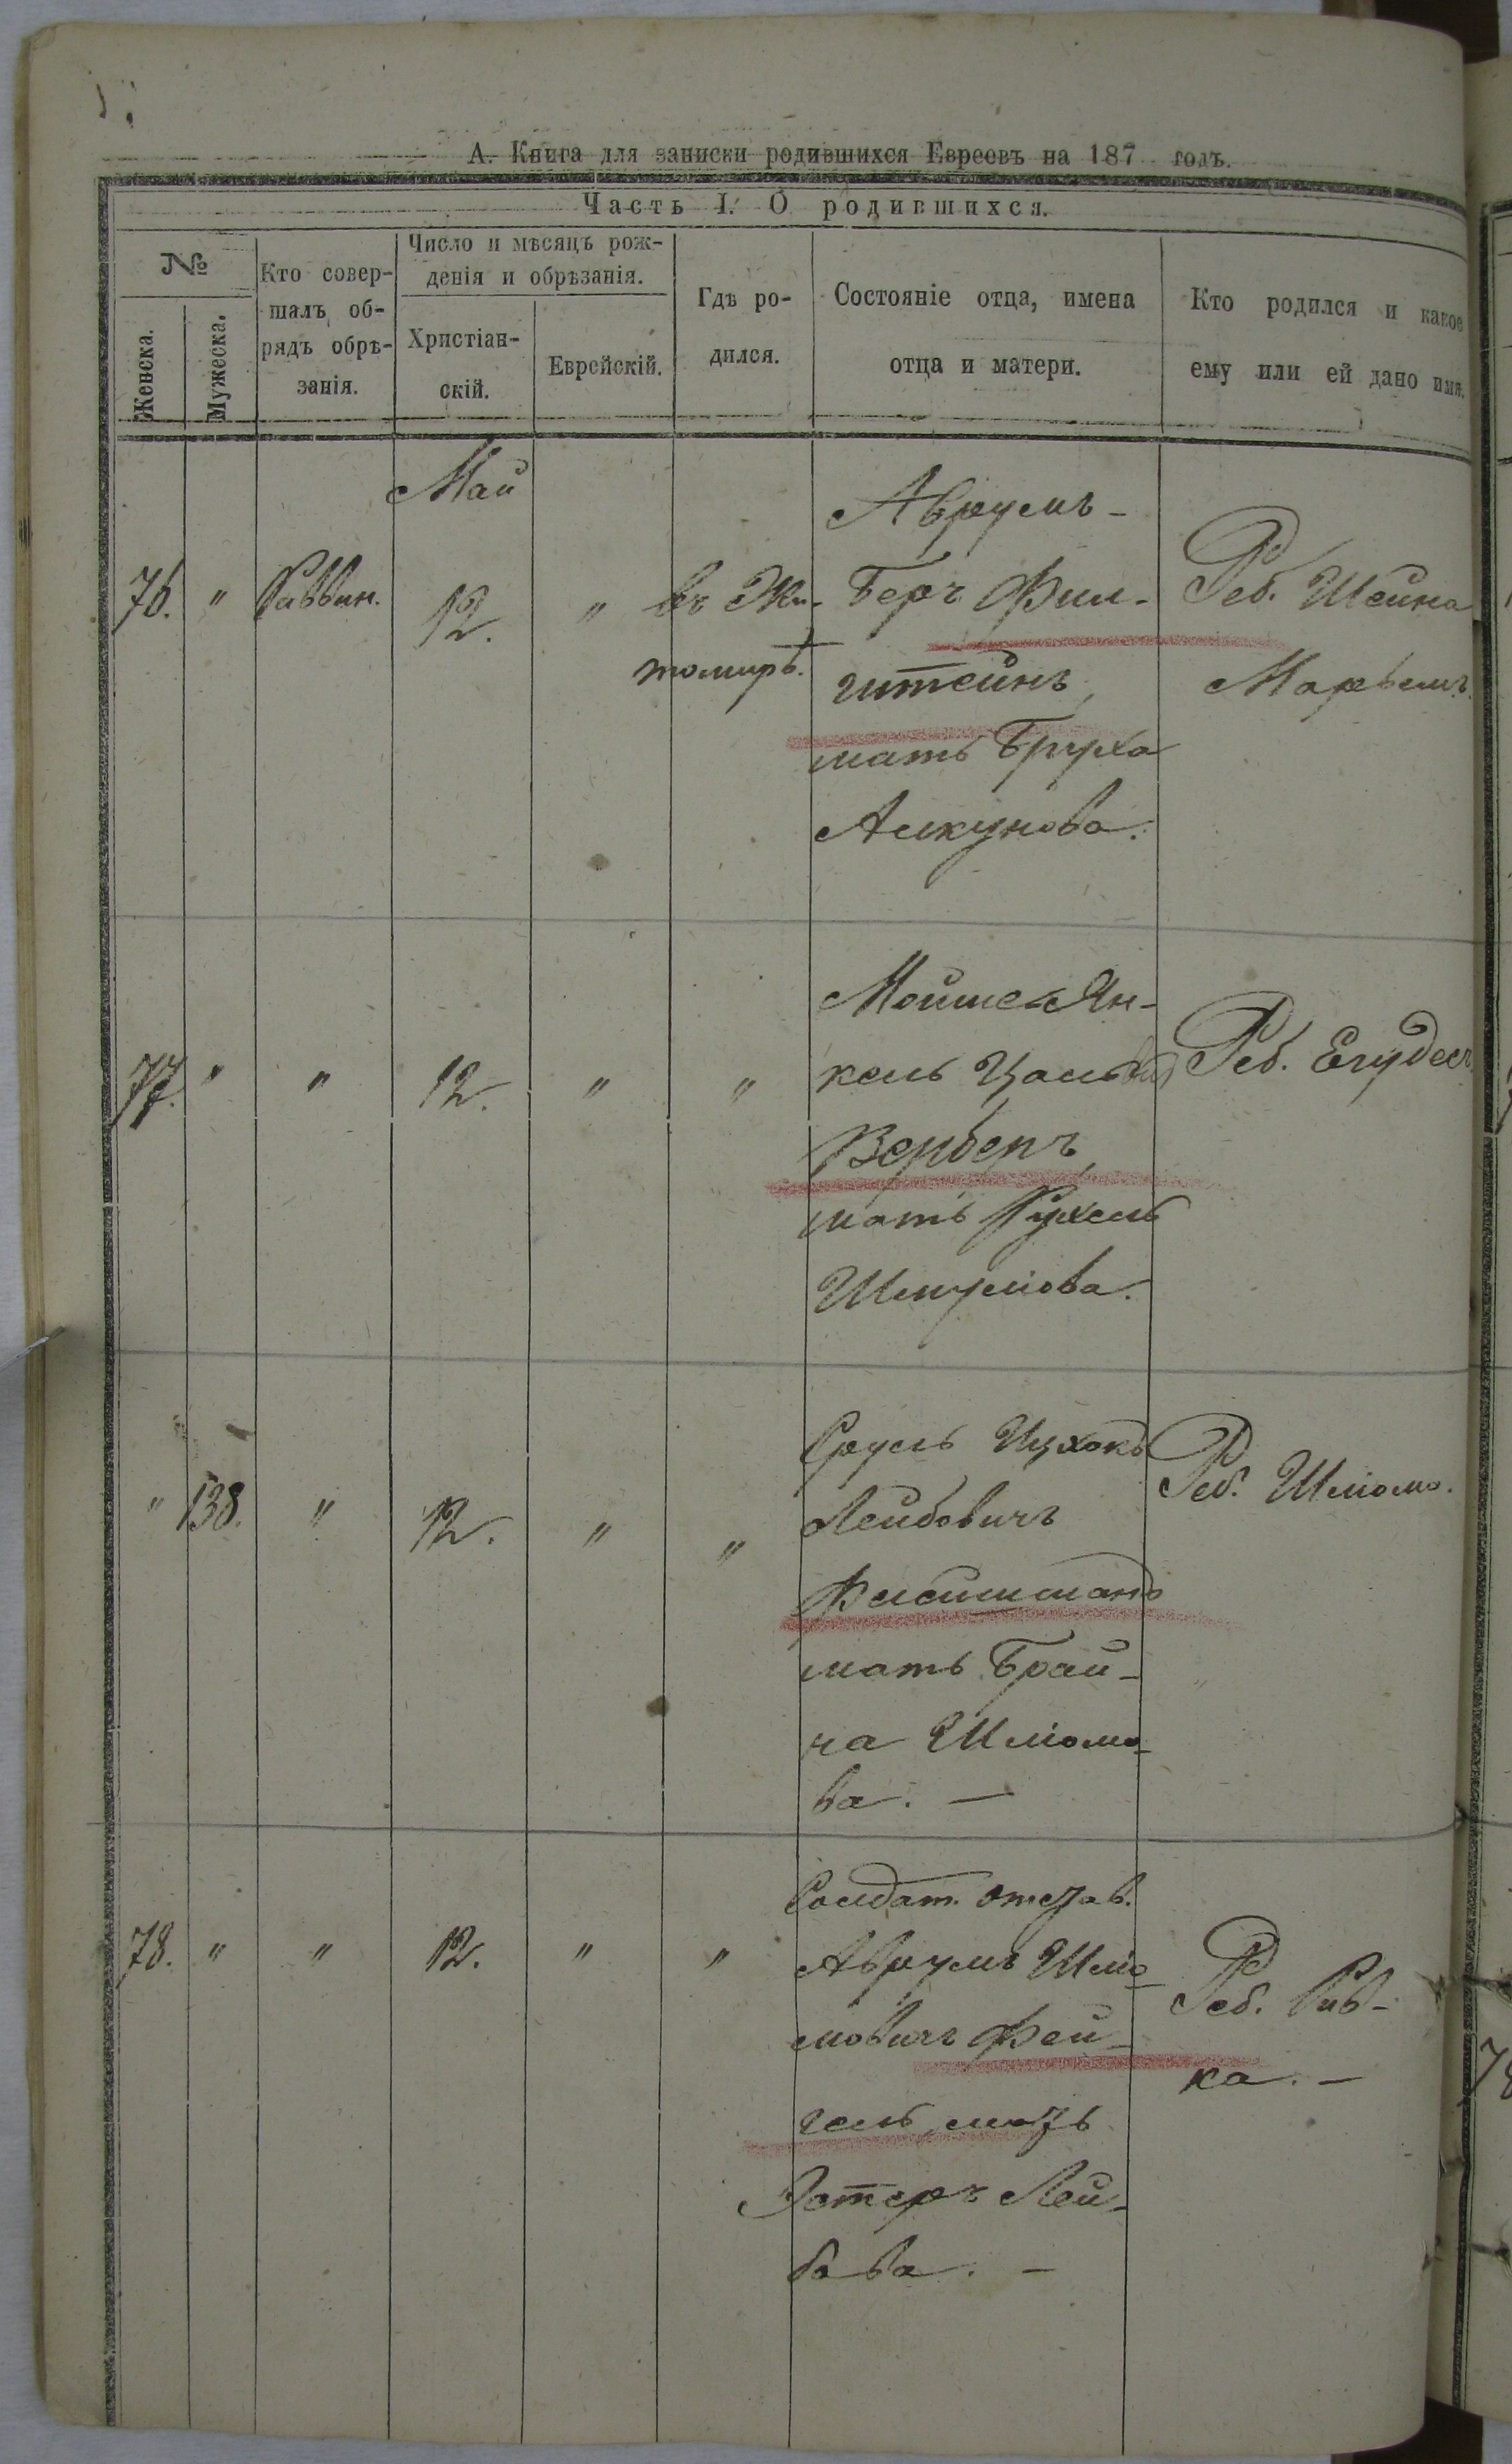 А. Книга для записки родившихся Евреевъ на 187 годъ.
Часть I. О родившихся.
№
Женска.
Мужеска.
Кто совер-
шалъ об-
рядъ обрѣ-
занія.
Число и мѣсяцъ рож-
денія и обрѣзанія.
Христіан-
скій.
Еврейскій.
Гдѣ ро-
дился.
Состояніе отца, имена
отца и матери.
Кто родился и какое
ему или ей дано имя.
Май
76. " Раввин. 12. " въ Жи-
томирѣ.
Аврумъ-
Беръ Фин-
штейнъ,
мать Бруха
Реб. Шейна
Марьемъ.
77. " " 12. " "
Мойше Ян-
кель
Верберъ,
мать Рухель
Шмулова.
Реб. Егудесъ
" 138. " 12. " "
Сруль Ицхокъ
Лейбовичъ
Флейшманъ
мать Брай-
на Шліомо-
ва. —
Реб. Шліомо.
78. " " 12. " "
Солдат. отстав.
Аврумъ Шліо-
мовичъ Фей-
гель, мать
Эстеръ Лей-
бова. —
Реб. Рив-
ка. —